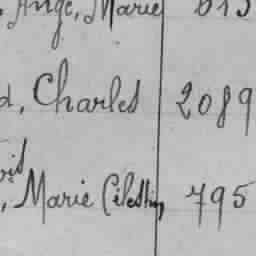 , Ange, Marie 613
d, Charles 2089
, Marie Célestin, 795